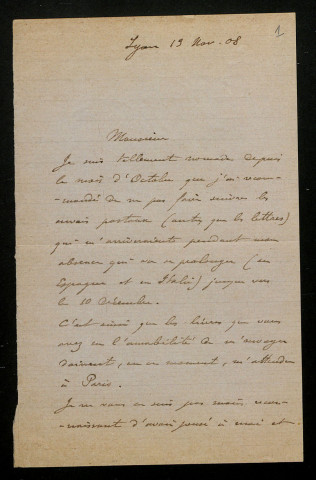 1
Lyon 13 Nov. 08
Monsieur
Je suis tellement nomade depuis
le mois d'Octobre que j'ai recom-
mandé de ne pas faire suivre les
envois postaux (autres que les lettres)
qui m'arriveraient pendant mon
absence qui va se prolonger (en
Espagne et en Italie) jusque vers
le 10 Décembre.
C'est ainsi que les livres que vous
avez eu l'amabilité de m'envoyer
doivent, en ce moment, m'attendre
à Paris.
Je ne vous en suis pas moins recon-
naissant d'avoir pensé à moi et